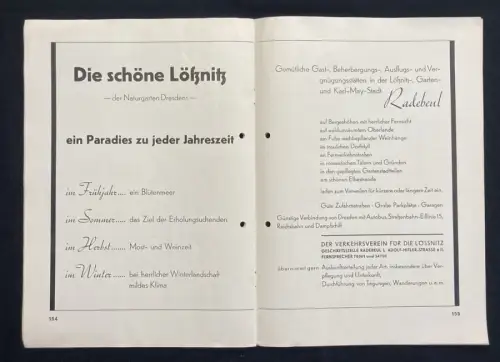 Die schöne Lößnitz
— der Naturgarten Dresdens —
ein Paradies zu jeder Jahreszeit
im Frühjahr.... ein Blütenmeer
im Sommer.... das Ziel der Erholungsuchenden
im Herbst...... Most- und Weinzeit
im Winter...... bei herrlicher Winterlandschaft
mildes Klima
154
Gemütliche Gast-, Beherbergungs-, Ausflugs- und Ver-
gnügungsstätten in der Lößnitz-, Garten-
und Karl-May-Stadt
Radebeul
auf Bergeshöhen mit herrlicher Fernsicht
auf waldumsäumtem Oberlande
am Fuße wohlgepflegter Weinhänge
im traulichen Dorfidyll
an Fernverkehrsstraßen
in romantischen Tälern und Gründen
in den gepflegten Gartenstadtteilen
am schönen Elbestrande
laden zum Verweilen für kürzere oder längere Zeit ein.
Gute Zufahrtsstraßen - Große Parkplätze - Garagen
Günstige Verbindung von Dresden mit Autobus, Straßenbahn Linie 15,
Reichsbahn und Dampfschiff
DER VERKEHRSVEREIN FÜR DIE LÖSSNITZ
GESCHÄFTSSTELLE RADEBEUL 1, ADOLF-HITLER-STRASSE
FERNSPRECHER und
übernimmt gern Auskunfterteilung jeder Art, insbesondere über Ver-
pflegung und Unterkunft,
Durchführung von Tagungen, Wanderungen u. a. m.
155